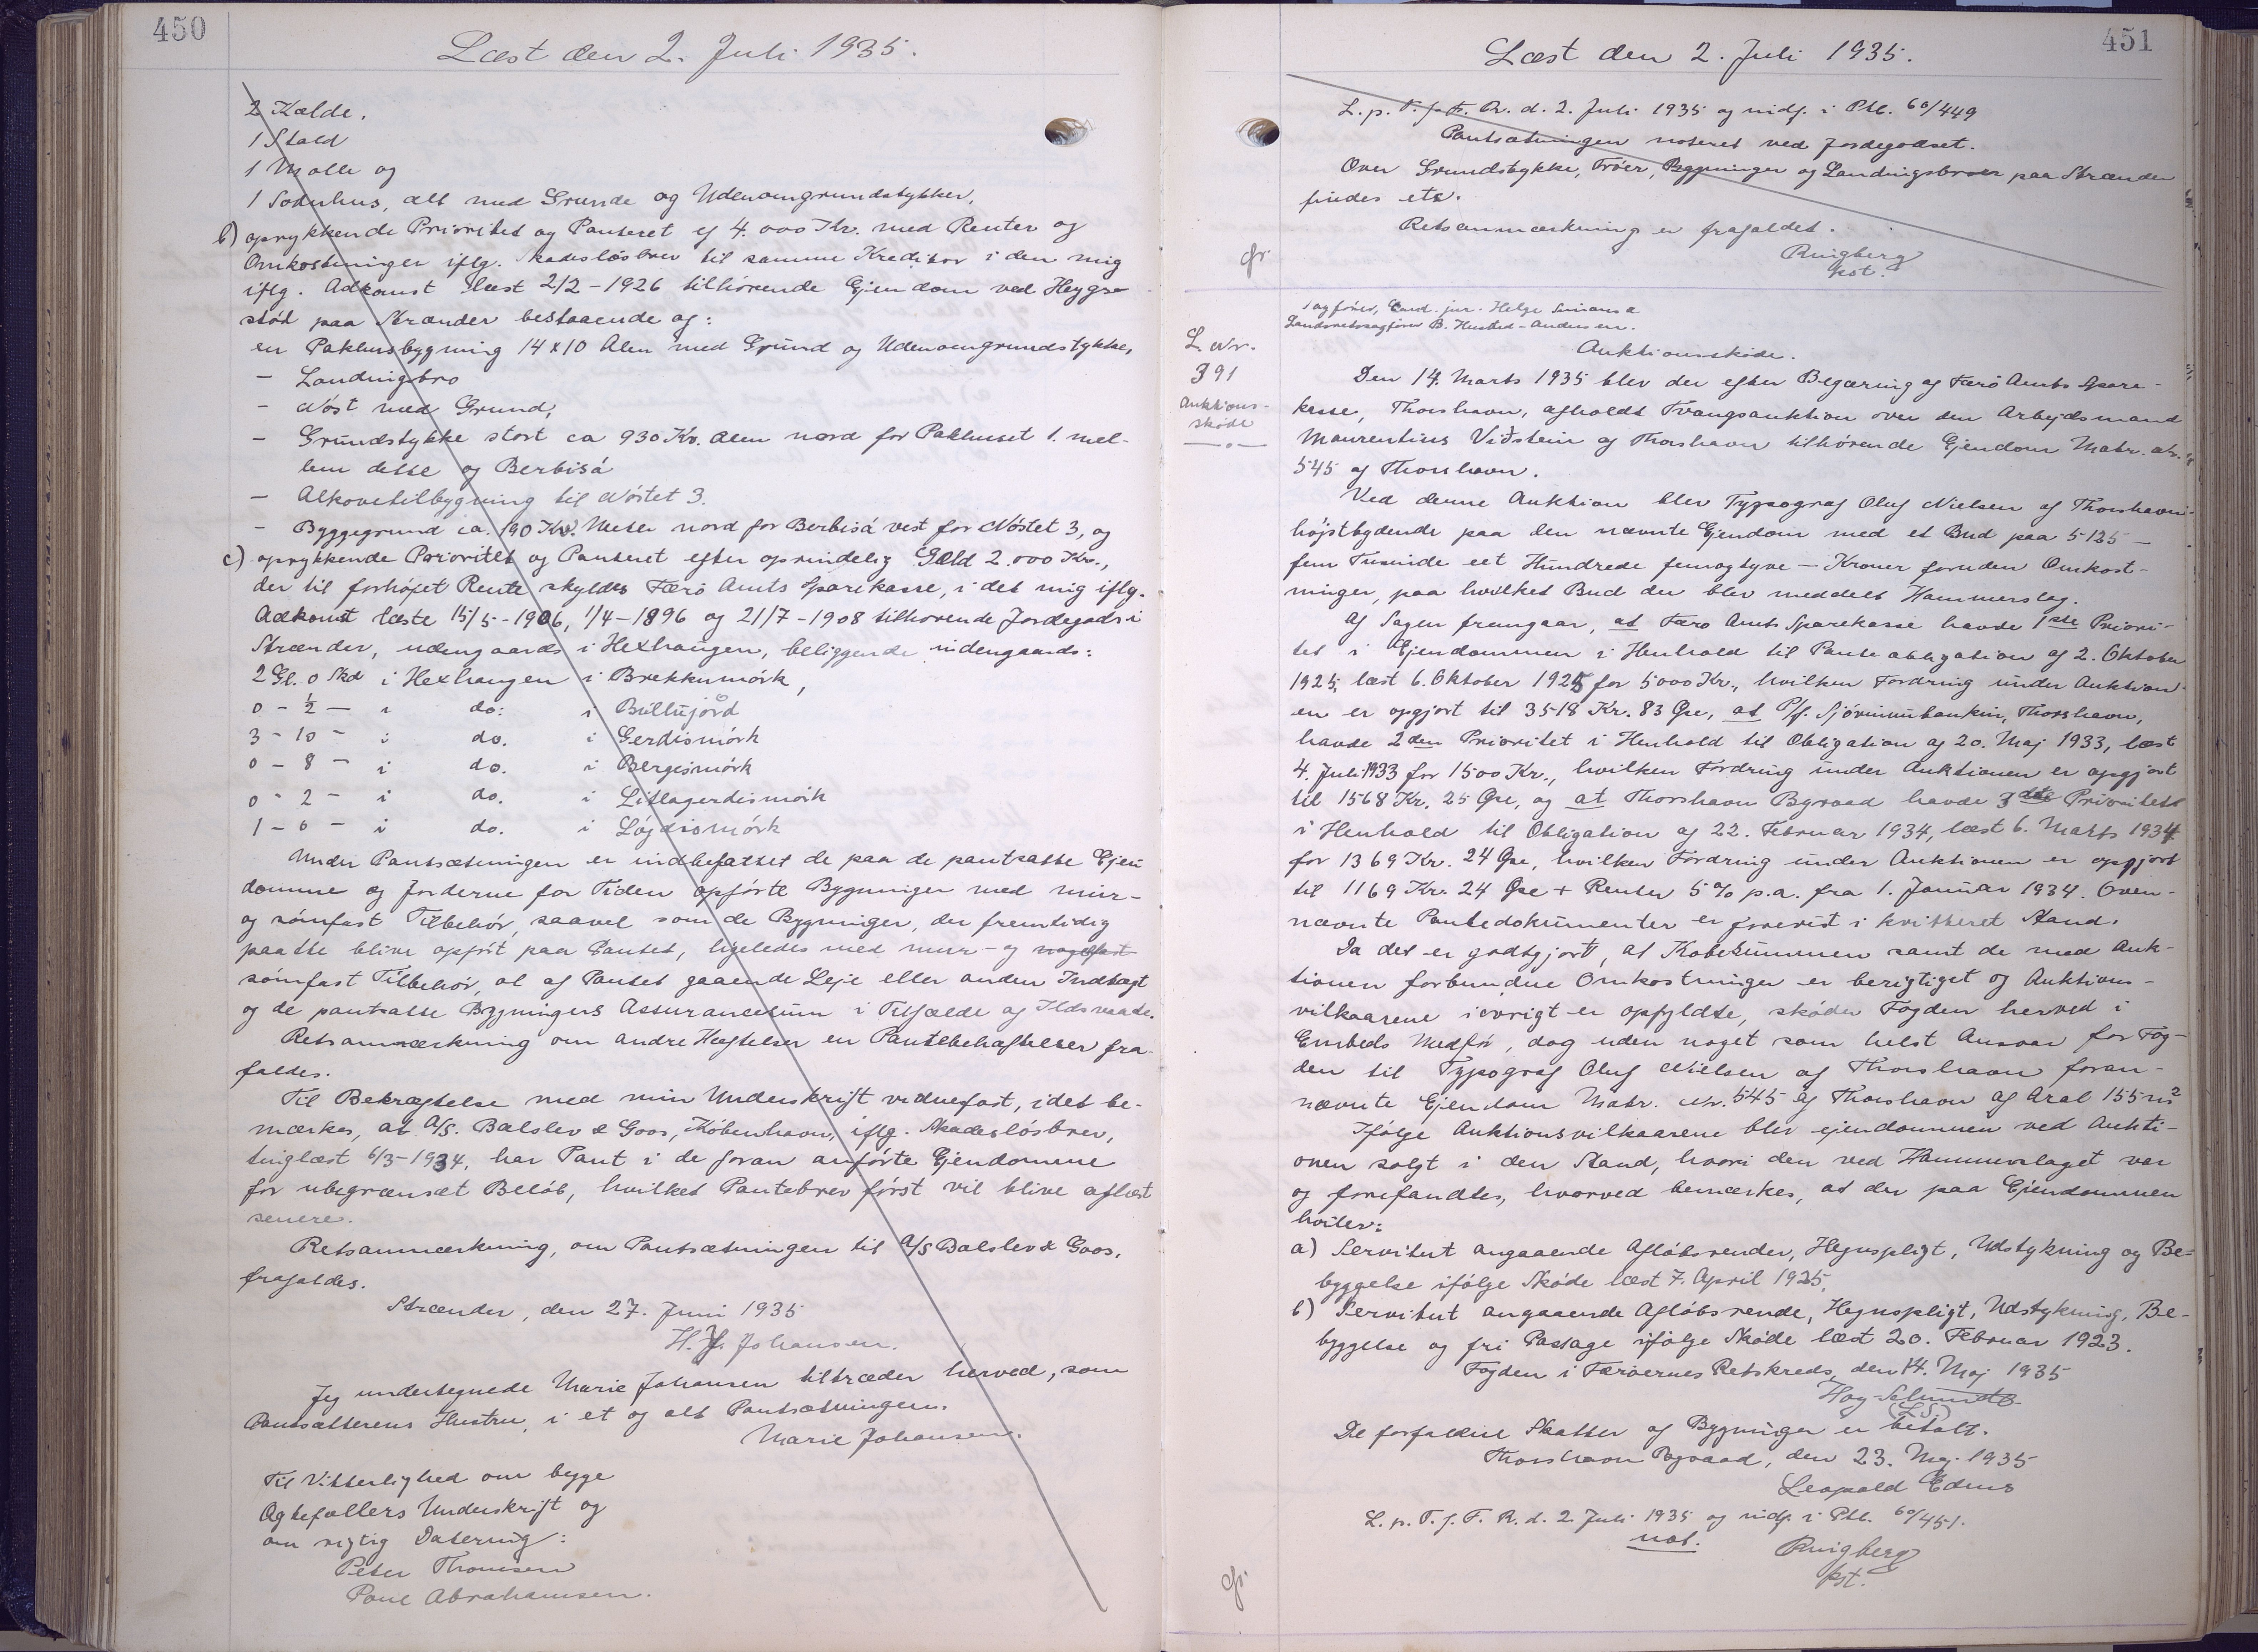 450
Læst den 2. Juli 1935.
2 Kælde.
1 Stald
1 Mølle og
1 Sodnhus, alt med Grunde og Udenomgrundstykker,
b) oprykkende Prioritet og Panteret ef 4.000 Kr. med Renter og
Omkostninger iflg. Skadesløsbrev til samme Kreditor i den mig
iflg. Adkomst læst 2/2-1926 tilhørende Ejendom ved Heygs-
stød paa Strænder bestaaende af:
en Pakhusbygning 14 x 10 Alen med Grund og Udenomgrundstykke,
- Landingsbro
- Nóst med Grund,
- Grundstykke stort ca 930 Kv. Alen nord for Pakhuset 1. mel-
lem dette og Berbisá
- Alkovetilbygning til Nóstet 3.
- Byggegrund ca. 190 Kv. Meter nord for Berbisá vest for Nóstet 3, og
c) oprykkende Prioritet og Panteret efter oprindelig Gæld 2.000 Kr.,
der til forhøjet Rente skyldes Færø Amts Sparekasse, i det mig iflg.
Adkomst læste 15/5-1906, 1/4-1896 og 21/7-1908 tilhørende Jordegods i
Strænder, udengaards i Hexhaugen, beliggende indengaards:
2 Gl. 0 Skd i Hexhaugen i Brekkumørk,
0 - ½ - i do: i Bullujørd
3 - 10 - i do. i Gerdismørk
0 - 8 - i do. i Bergismørk
0 - 2 - i do. i Litlagerdismørk
1 - 0 - i do. i Lógdismørk
Under Pantsætningen er indbefattet de paa de pantsatte Ejen
domme og Jorderne for Tiden opførte Bygninger med mur-
og sømfast Tilbehør, saavel som de Bygninger, der fremtidig
paatte blive opført paa Pantet, ligeledes med mur- og nagelfast
sømfast Tilbehør, al af Pantet gaaende Leje eller anden Indtægt
og de pantsatte Bygningers Assurancesum i Tilfælde af Ildsvaade.
Retsanmærkning om andre Hæftelser en Pantebehæftelser fra-
faldes.
Til Bekræftelse med min Underskrift vidnefast, idet be-
mærkes, at A/S. Balslev & Goos, København, iflg. Skadesløsbrev,
tinglæst 6/3-1934, har Pant i de foran anførte Ejendomme
for ubegrænset Beløb, hvilket Pantebrev først vil blive aflæst
senere.
Retsanmærkning, om Pantsætningen til A/S Balslev & Goos,
frafaldes.
Strænder, den 27. Juni 1935
H. J. Johansen.
Jeg undertegnede Marie Johansen tiltræder herved, som
Pantsætterens Hustru, i et og alt Pantsætningen.
Marie Johansen.
Til Vitterlighed om begge
Ægtefællers Underskrift og
om rigtig Datering:
Peter Thomsen
Poul Abrahamsen.
451
Læst den 2. Juli 1935.
L. p. T. f. F. R. d. 2. Juli 1935 og indf. i Ptb. 60/449
Pantsætningen noteret ved Jordegodset.
Over Grundstykke, Trøer, Bygninger og Landingsbroer paa Strænder
findes ets.
Retsanmærkning er frafaldet.
Ringberg
kst.
gr.
Sagfører, Cand. jur. Helge
Landsretssagfører B. Husted-Andersen.
L. Nr.
391
Auktions-
skøde
Auktionsskøde.
Den 14. Marts 1935 blev der efter Begæring af Færø Amts Spare-
kasse, Thorshavn, afholdt Tvangsauktion over den Arbejdsmand
Maurentius Viðstein af Thorshavn tilhørende Ejendom Matr. Nr.
545 af Thorshavn.
Ved denne Auktion blev Typograf Oluf Nielsen af Thorshavn
højstbydende paa den nævnte Ejendom med et Bud paa 5125 -
fem Tusinde eet Hundrede femogtyve - Kroner foruden Omkost-
ninger, paa hvilket Bud der blev meddelt Hammerslag.
Af Sagen fremgaar, at Færø Amts Sparekasse havde 1ste Priori-
tet i Ejendommen i Henhold til Panteobligation af 2. Oktober
1925, læst 6. Oktober 1925 for 5000 Kr., hvilken Fordring under Auktion
en er opgjort til 3518 Kr. 83 Øre, at P/f. Sjóvinnubankin, Thorshavn,
havde 2den Prioritet i Henhold til Obligation af 20. Maj 1933, læst
4. Juli 1933 for 1500 Kr., hvilken Fordring under Auktionen er opgjort
til 1568 Kr. 25 Øre, og at Thorshavn Byraad havde 3die Prioritet
i Henhold til Obligation af 22. Februar 1934, læst 6. Marts 1934
for 1369 Kr. 24 Øre, hvilken Fordring under Auktionen er opgjort
til 1169 Kr. 24 Øre + Renter 5% p.a. fra 1. Januar 1934. Oven-
nævnte Pantedokumenter er forevist i kvitteret Stand.
Da det er godtgjort, at Købesummen samt de med Auk-
tionen forbundne Omkostninger er berigtiget og Auktions-
vilkaarene iøvrigt er opfyldte, skøder Fogden herved i
Embeds Medfør, dog uden noget som helst Ansvar for Fog-
den til Typograf Oluf Nielsen af Thorshavn foran-
nævnte Ejendom Matr. Nr. 545 af Thorshavn af Aral 155 m²
Ifølge Auktionsvilkaarene blev ejendommen ved Aukti-
onen solgt i den Stand, hvori den ved Hammerslaget var
og forefandtes, hvorved bemærkes, at der paa Ejendommen
hviler:
a) Servitut angaaende Afløbsrender, Hegnspligt, Udstykning og Be-
byggelse ifølge Skøde læst 7. April 1925,
b) Servitut angaaende Afløbsrende, Hegnspligt, Udstykning, Be-
byggelse og fri Passage ifølge Skøde læst 20. Februar 1923.
Fogden i Færøernes Retskreds, den 14. Maj 1935
(L.S.)
De forfaldne Skatter af Bygninger er betalt.
Thorshavn Byraad, den 23. Maj 1935
Leopold
L. p. T. f. F. R. d. 2. Juli 1935 og indf. i Ptb. 60/451.
not.
Ringberg
kst.
gr.